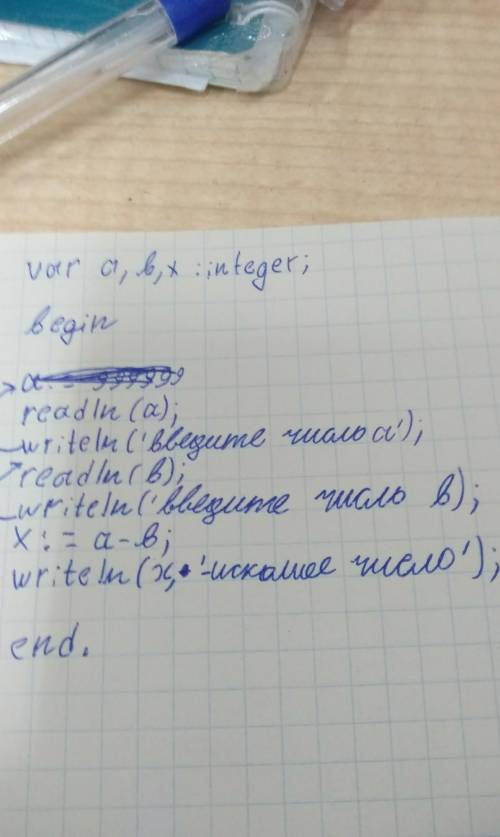 var a, b, x : integer;
begin
readln(a);
writeln('введите число a');
readln(b);
writeln('введите число b);
x := a-b;
writeln(x, '-искомое число');
end.